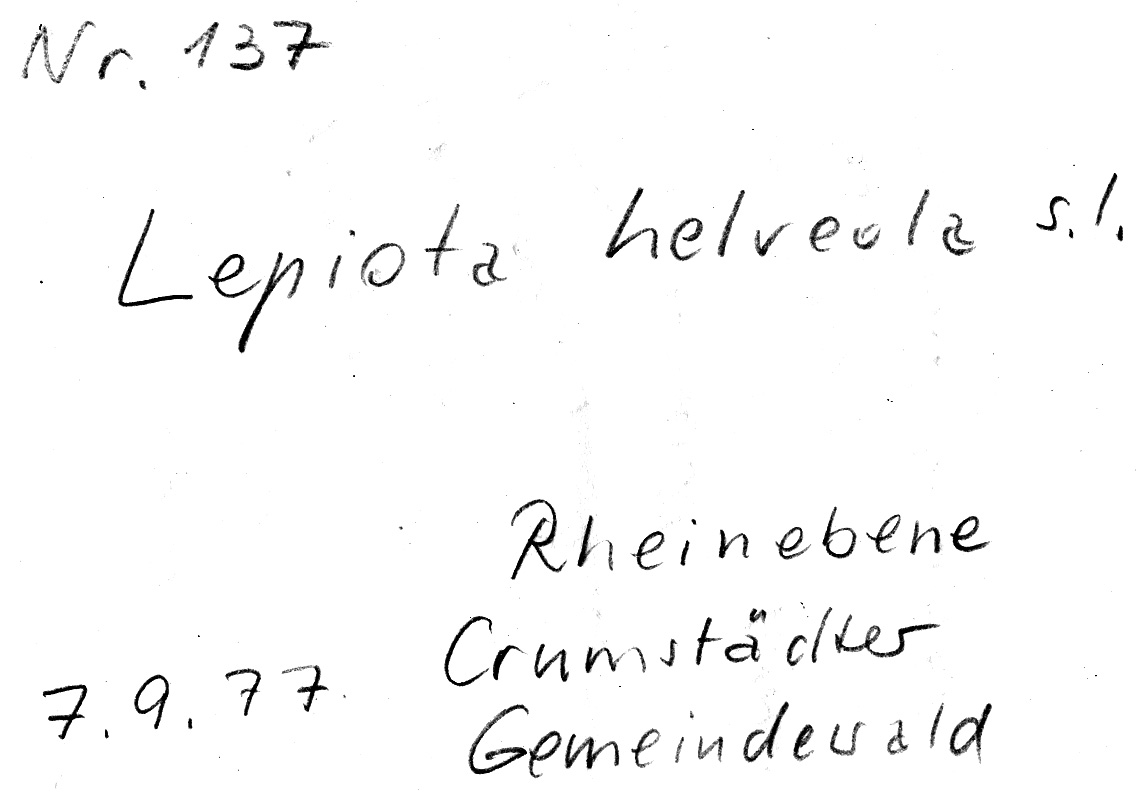 Nr. 137
Lepiota helveola s.l.
Rheinebene
Crumstädter
7.9.77 Gemeindewald